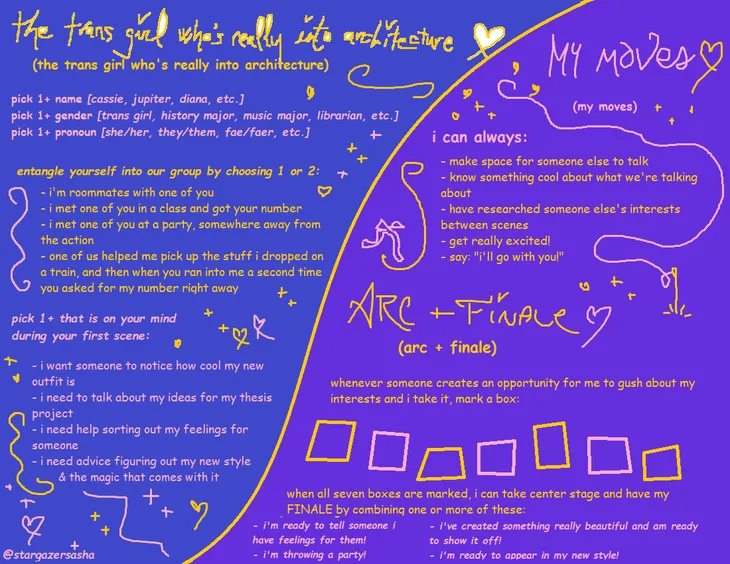 the trans girl who's really into architecture
(the trans girl who's really into architecture)
pick 1+ name [cassie, jupiter, diana, etc.]
pick 1+ gender [trans girl, history major, music major, librarian, etc.]
pick 1+ pronoun [she/her, they/them, fae/faer, etc.]
entangle yourself into our group by choosing 1 or 2:
- i'm roommates with one of you
- i met one of you in a class and got your number
- i met one of you at a party, somewhere away from
the action
- one of us helped me pick up the stuff i dropped on
a train, and then when you ran into me a second time
you asked for my number right away
pick 1+ that is on your mind
during your first scene:
- i want someone to notice how cool my new
outfit is
- i need to talk about my ideas for my thesis
project
- i need help sorting out my feelings for
someone
- i need advice figuring out my new style
& the magic that comes with it
@stargazersasha
MY MOVES
(my moves)
i can always:
- make space for someone else to talk
- know something cool about what we're talking
about
- have researched someone else's interests
between scenes
- get really excited!
- say: "i'll go with you!"
ARC + FINALE
(arc + finale)
whenever someone creates an opportunity for me to gush about my
interests and i take it, mark a box:
when all seven boxes are marked, i can take center stage and have my
FINALE by combining one or more of these:
- i'm ready to tell someone i
have feelings for them!
- i'm throwing a party!
- i've created something really beautiful and am ready
to show it off!
- i'm ready to appear in my new style!